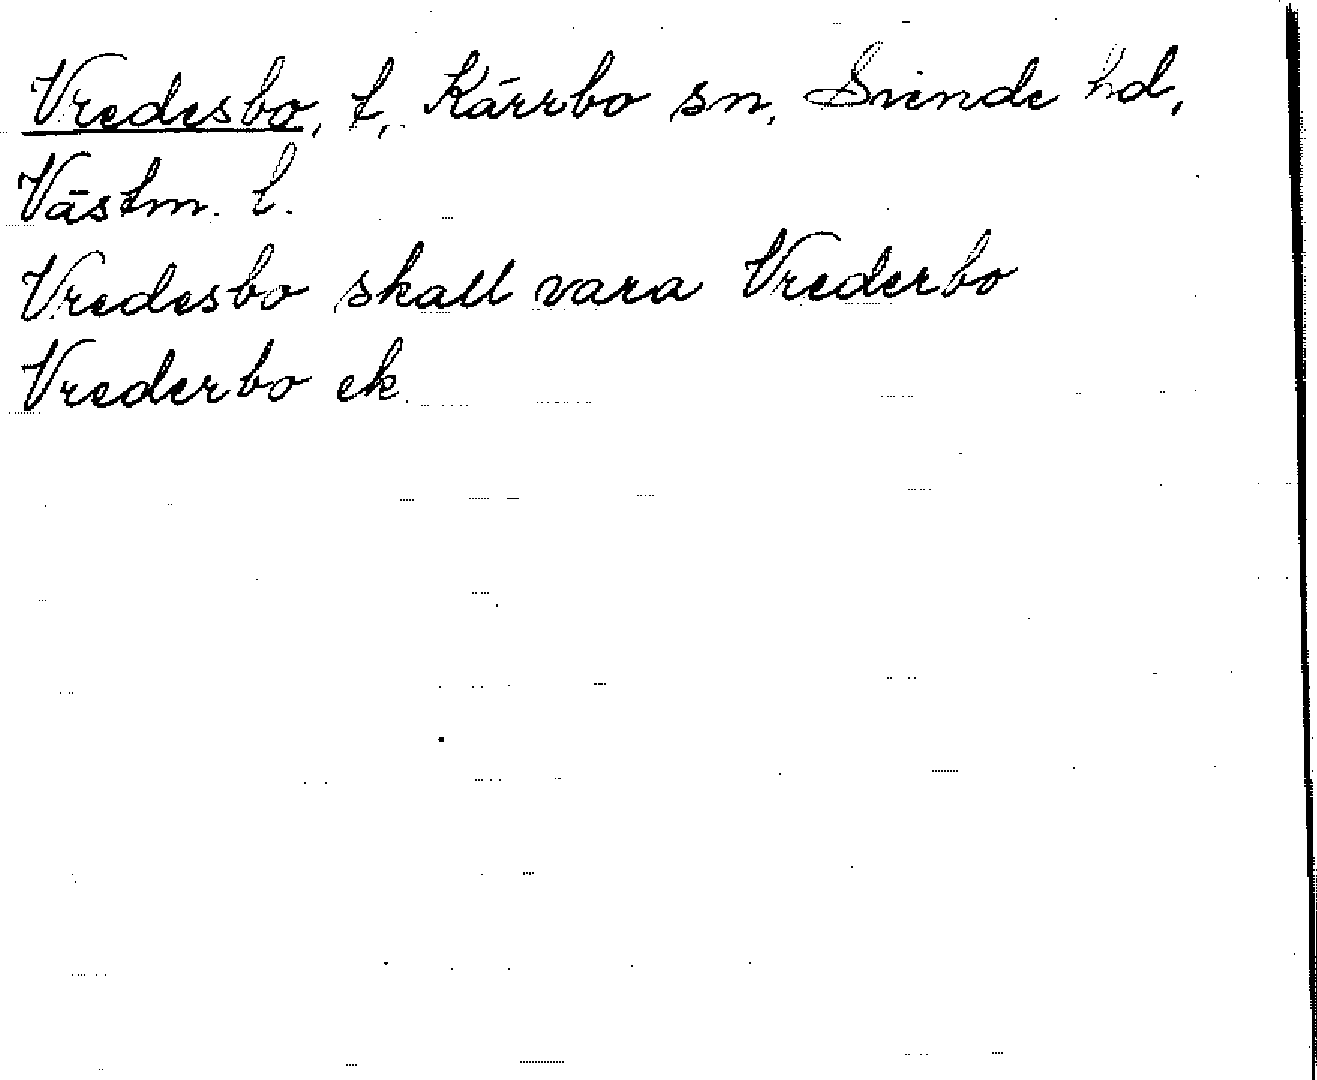 Vredesbo, t, Kärrbo sn, Siende hd,
Västm. l.
Vredesbo skall vara Vrederbo
Vrederbo ek.